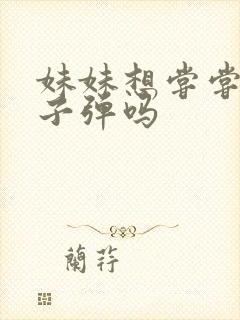 妹妹想尝尝
子弹吗
蘭荐